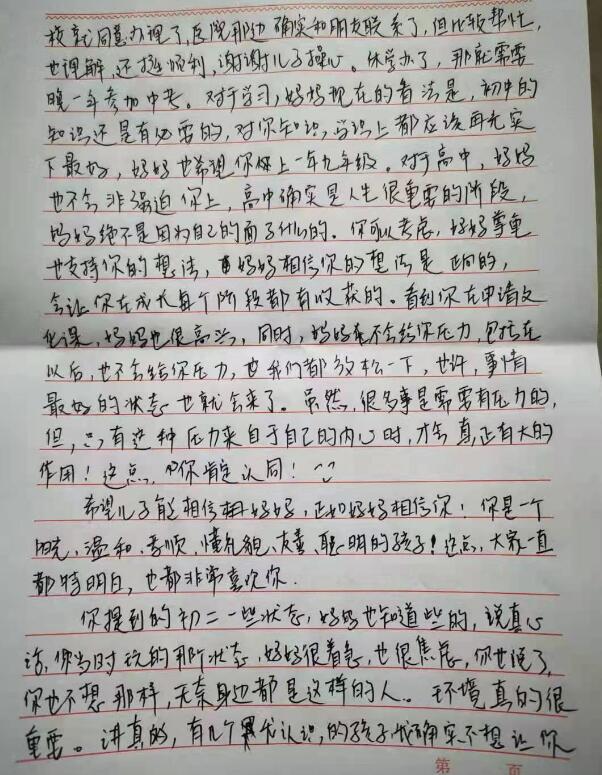 校就同意办理了,医院那边确实和朋友联系了,但比较帮忙,
也理解,还挺顺利,谢谢儿子操心。休学办了,那就需要
晚一年参加中考。对于学习,妈妈现在的看法是,初中的
知识还是有必要的,对你知识,学识上都应该再充实
下最好,妈妈也希望你上一年九年级。对于高中,妈妈
也不会非强迫你上,高中确实是人生很重要的阶段,
妈妈绝不是因为自己的面子什么的。你可以考虑,妈妈尊重
也支持你的想法,妈妈相信你的想法是正向的,
会让你在成长每个阶段都有收获的。看到你在申请文
化课,妈妈也很高兴,同时,妈妈不会给你压力,包括在
以后,也不会给你压力,我们都放松一下,也许,事情
最好的状态也就会来了。虽然,很多事是需要有压力的,
但,只有这种压力来自于自己的内心时,才会真正有大的
作用!这点,你肯定认同!
希望儿子能相信妈妈,正如妈妈相信你!你是一个
阳光、温和、孝顺、懂礼貌、友善、聪明的孩子!这点,大家一直
都特明白,也都非常喜欢你.
你提到的初二一些状态,妈妈也知道些的,说真心
话,你当时玩的那阶状态,妈妈很着急,也很焦虑,你也说了,
你也不想那样,无奈身边都是这样的人。环境真的很
重要。讲真的,有几个我认识,的孩子我确实不想让你
第 页